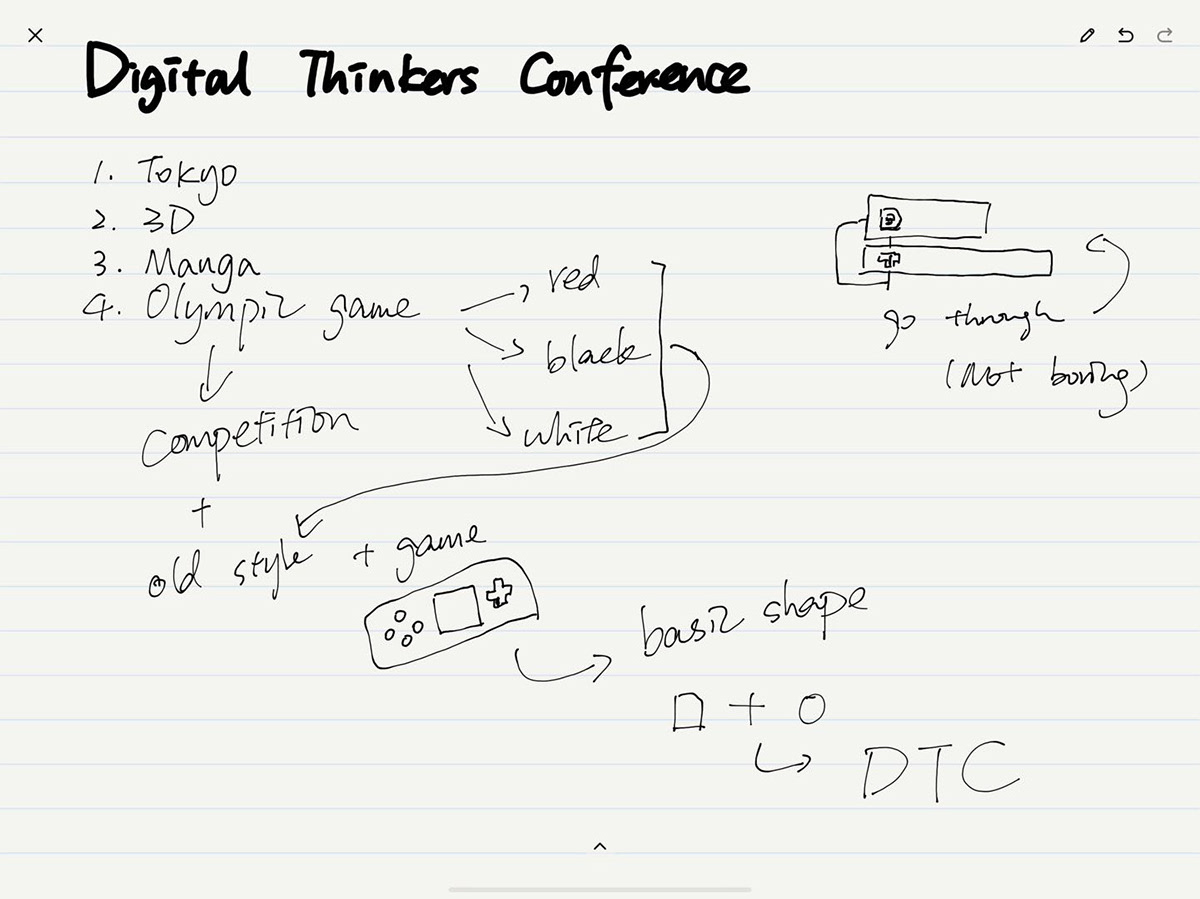 Digital Thinkers Conference
1. Tokyo
2. 3D
3. Manga
4. Olympic game
red
black
white
Competition
+
old style + game
go through
(Not boring)
basic shape
+
DTC